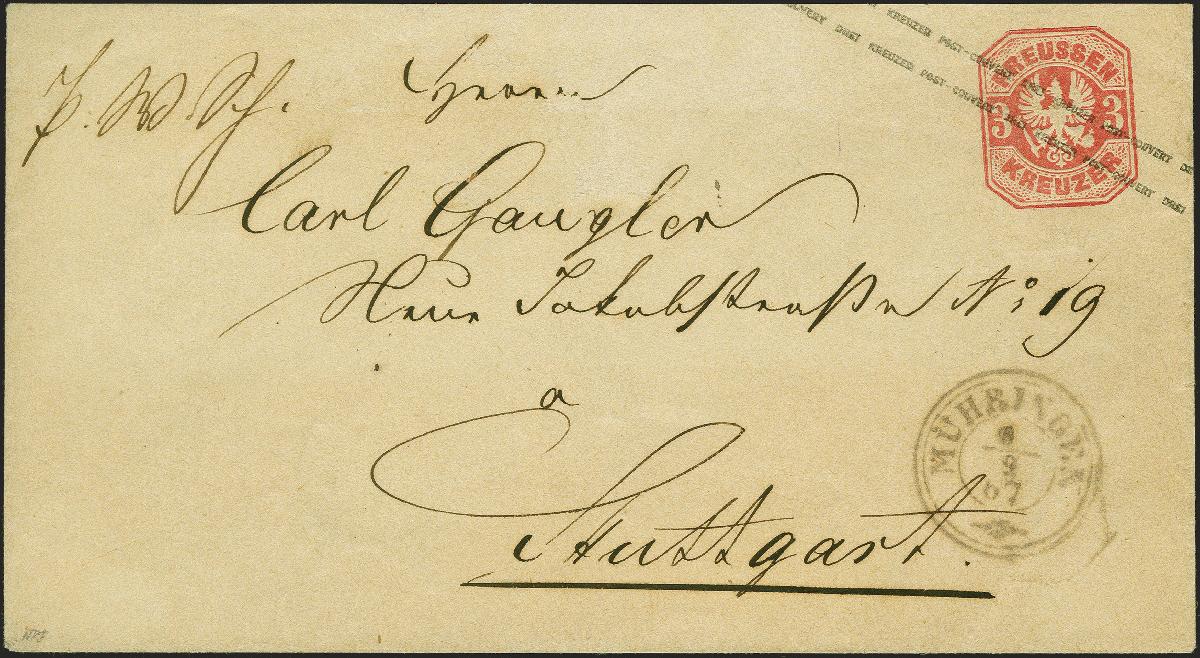 P. W. Sch.
Herrn
Carl Gaugler
Neue Jakobstraße No: 19
a
Stuttgart.
PREUSSEN
3 3
KREUZER
DREI KREUZER POST-COUVERT DREI KREUZER POST-COUVERT
COUVERT DREI KREUZER POST-COUVERT DREI KREUZER POST-COUVERT DREI
MÜHRINGEN
6
9
67